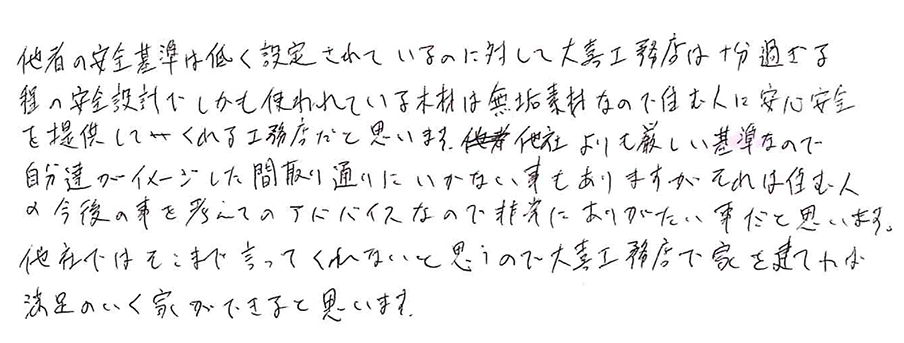 他者の安全基準は低く設定されているのに対して大喜工務店は十分過ぎる
程の安全設計でしかも使われている木材は無垢素材なので住む人に安心安全
を提供してくれる工務店だと思います。他社よりも厳しい基準なので
自分達がイメージした間取り通りにいかない事もありますがそれは住む人
の今後の事を考えてのアドバイスなので非常にありがたい事だと思います。
他社ではそこまで言ってくれないと思うので大喜工務店で家を建てれば
満足のいく家ができると思います。